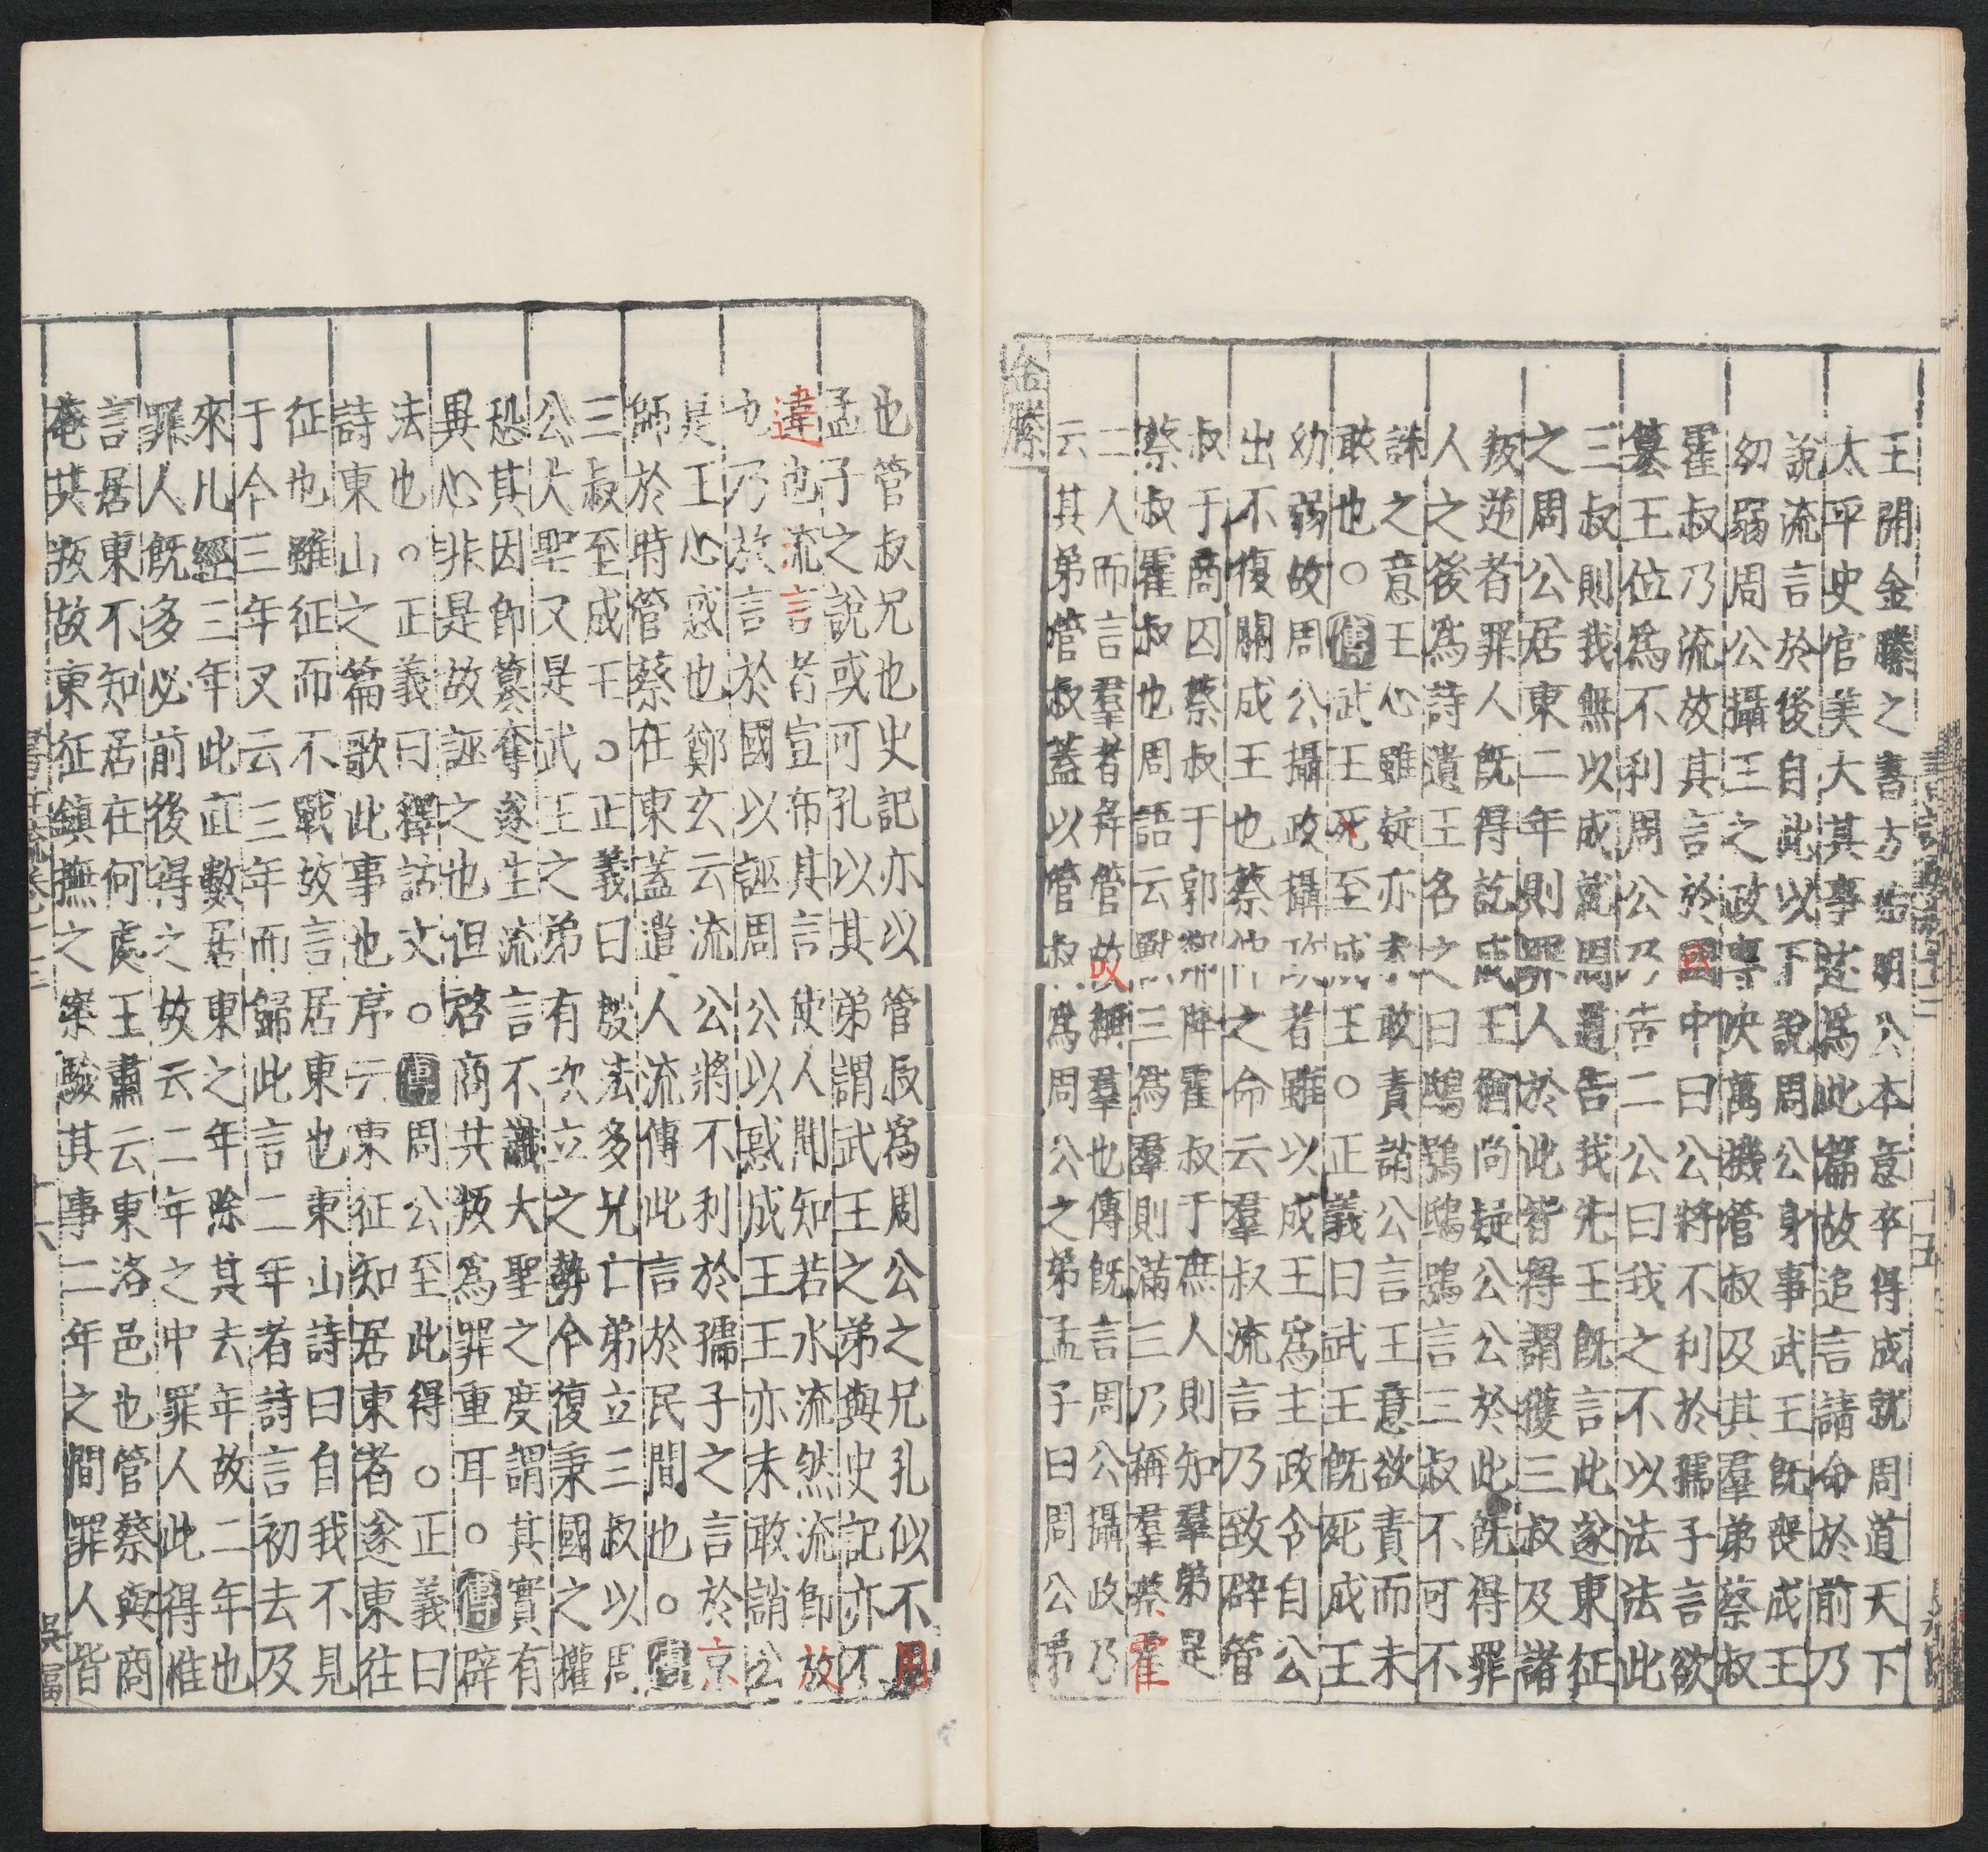 王開金縢之書方始明公本意卒得成就周道天下
太平史官美大其事述爲此篇故追言請命於前乃
說流言於後自此以下說周公身事武王既喪成王
幼弱周公攝王之政專決萬機管叔及其羣弟蔡叔
霍叔乃流放其言於國中曰公將不利於孺子言欲
篡王位爲不利周公乃告二公曰我之不以法法此
三叔則我無以成就周道告我先王既言此遂東征
之周公居東二年則罪人於此皆得謂獲三叔及諸
叛逆者罪人既得訖成王猶尚疑公公於此既得罪
人之後爲詩遺王名之曰鴟鴞鴟鴞言三叔不可不
誅之意王心雖疑亦未敢責誚公言王意欲責而未
敢也○傳武王死至成王○正義曰武王既死成王
幼弱故周公攝政攝政者雖以成王爲主政令自公
出不復關成王也蔡仲之命云羣叔流言乃致辟管
叔于商囚蔡叔于郭鄰降霍叔于庶人則知羣弟是
蔡叔霍叔也周語云獸三爲羣則滿三乃稱羣蔡霍
二人而言羣者并管故稱羣也傳既言周公攝政乃
云其弟管叔蓋以管叔爲周公之弟孟子曰周公弟
金縢
也管叔兄也史記亦以管叔爲周公之兄孔似不用
孟子之說或可孔以其弟謂武王之弟與史記亦不
違也流言者宣布其言使人聞知若水流然流即放
也乃放言於國以誣周公以惑成王王亦未敢誚公
是王心惑也鄭玄云流公將不利於孺子之言於京
師於時管蔡在東蓋遣人流傳此言於民間也○傳
三叔至成王○正義曰殷法多兄亡弟立三叔以周
公大聖又是武王之弟有次立之勢今復秉國之權
恐其因即篡奪遂生流言不識大聖之度謂其實有
異心非是故誣之也但啓商共叛爲罪重耳○傳辟
法也○正義曰釋詁文○傳周公至此得○正義曰
詩東山之篇歌此事也序云東征知居東者遂東往
征也雖征而不戰故言居東也東山詩曰自我不見
于今三年又云三年而歸此言二年者詩言初去及
來凡經三年此直數居東之年除其去年故二年也
罪人既多必前後得之故云二年之中罪人此得惟
言居東不知居在何處王肅云東洛邑也管蔡與商
奄共叛故東征鎮撫之案驗其事二年之間罪人皆
吳富